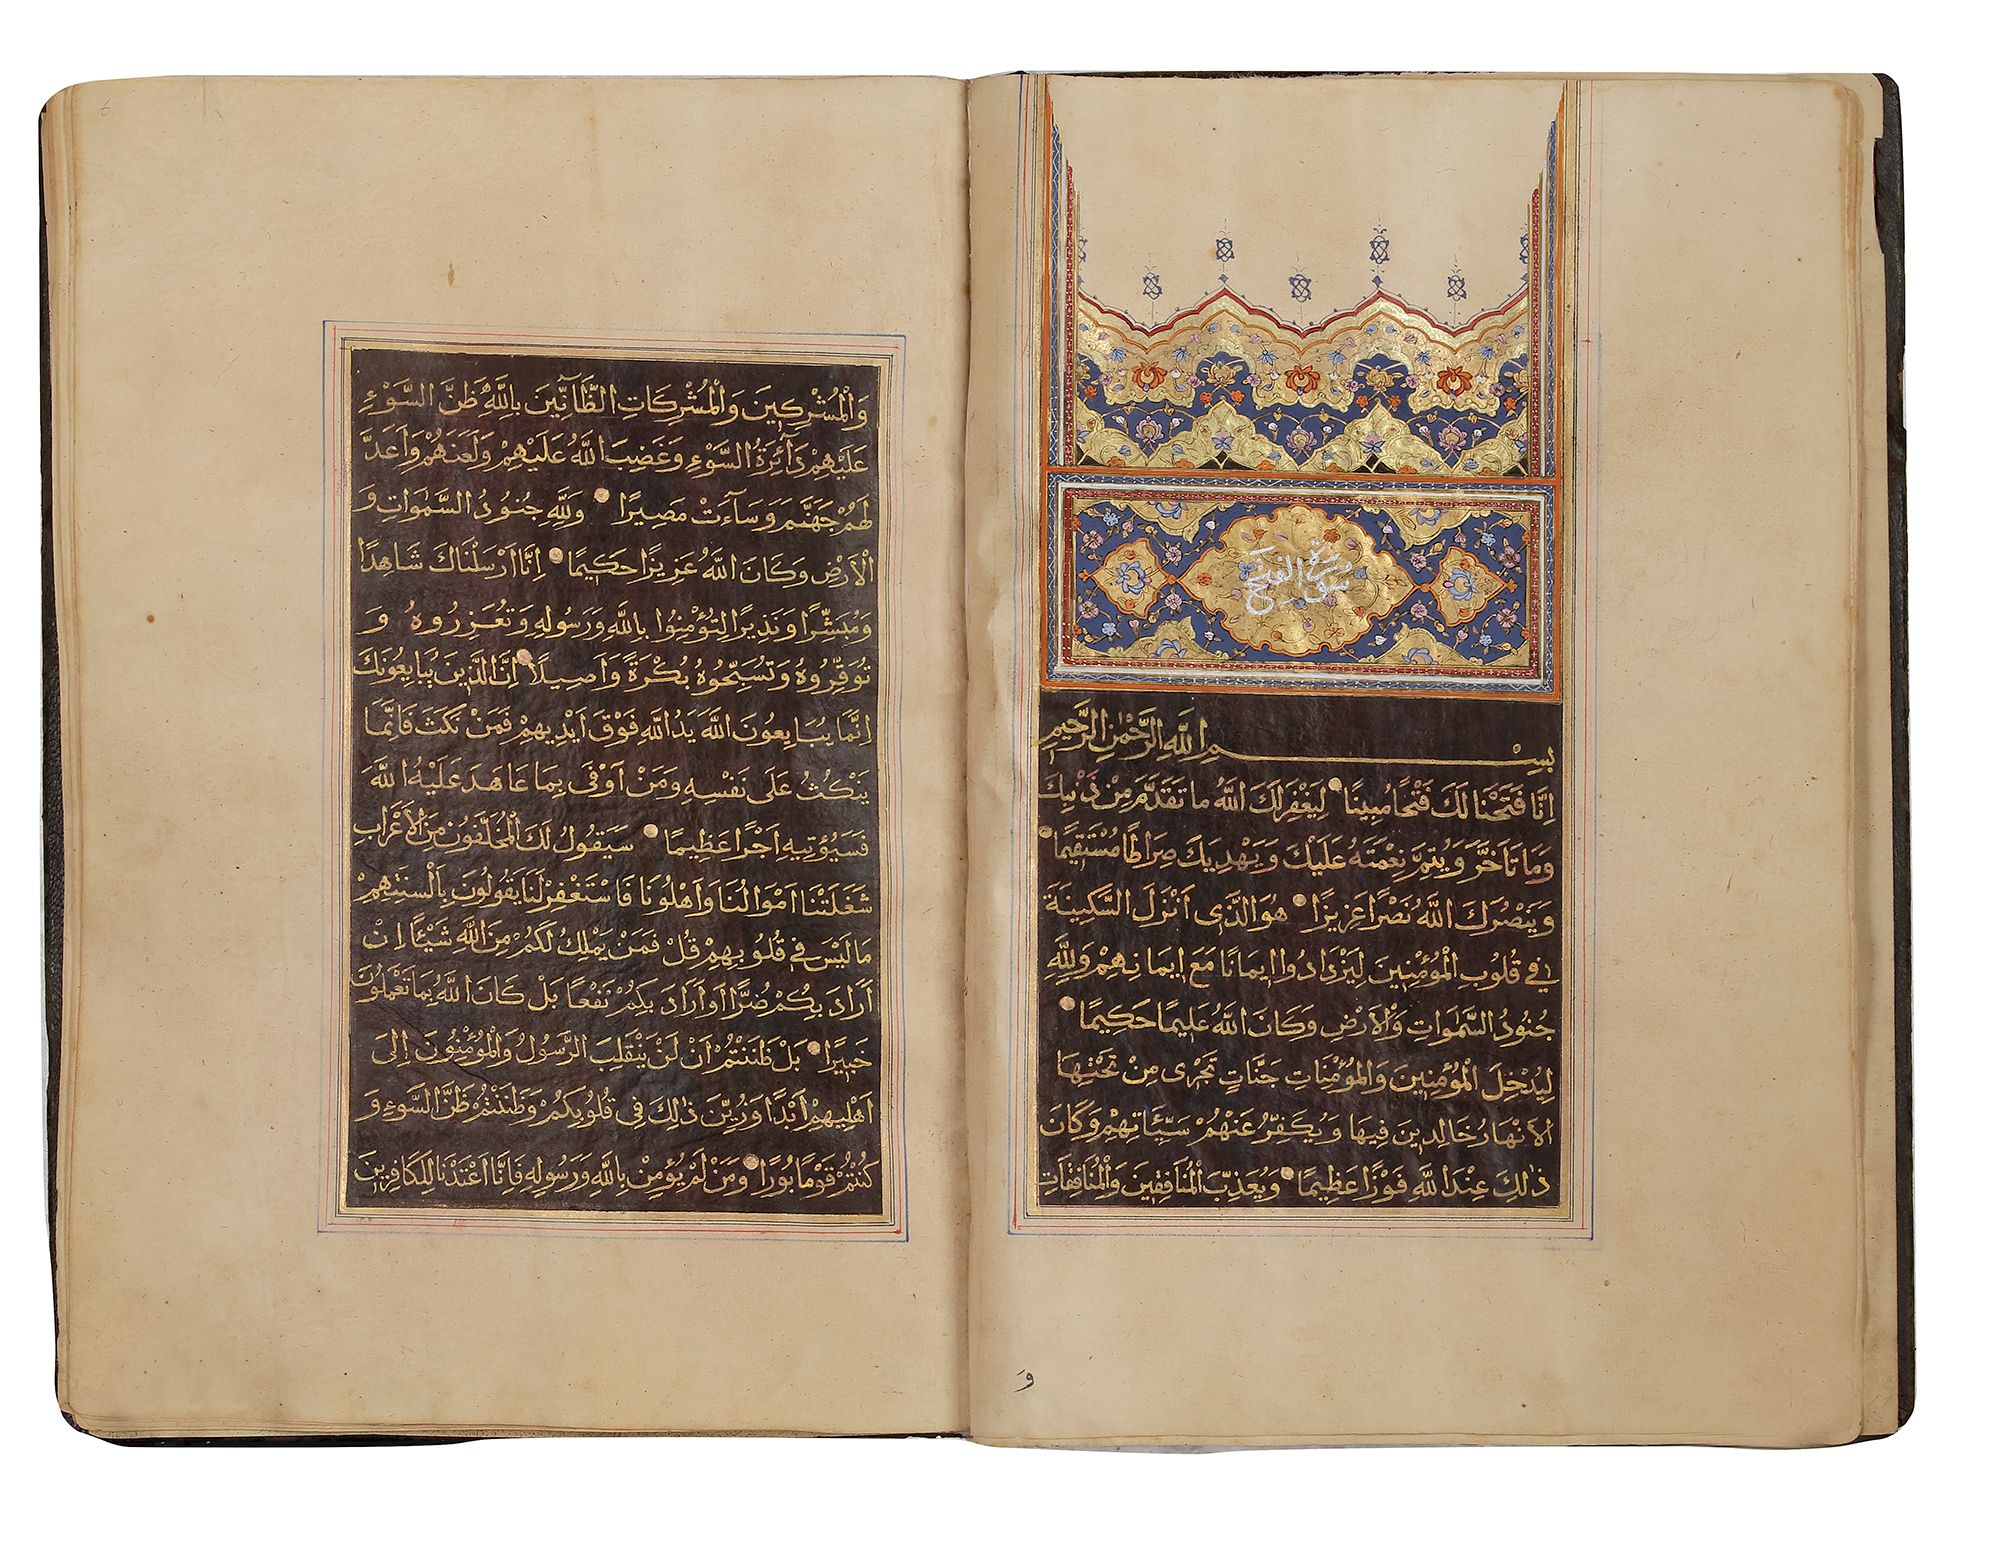 سورة الفتح
بِسْمِ اللَّهِ الرَّحْمٰنِ الرَّحِيمِ
اِنَّا فَتَحْنَا لَكَ فَتْحًا مُبِينًا لِيَغْفِرَ لَكَ اللَّهُ مَا تَقَدَّمَ مِنْ ذَنْبِكَ
وَمَا تَاَخَّرَ وَيُتِمَّ نِعْمَتَهُ عَلَيْكَ وَيَهْدِيَكَ صِرَاطًا مُسْتَقِيمًا
وَيَنْصُرَكَ اللَّهُ نَصْرًا عَزِيزًا هُوَ الَّذِى اَنْزَلَ السَّكِينَةَ
فِى قُلُوبِ الْمُؤْمِنِينَ لِيَزْدَادُوا اِيمَانًا مَعَ اِيمَانِهِمْ وَلِلَّهِ
جُنُودُ السَّمٰوَاتِ وَالْاَرْضِ وَكَانَ اللَّهُ عَلِيمًا حَكِيمًا
لِيُدْخِلَ الْمُؤْمِنِينَ وَالْمُؤْمِنَاتِ جَنَّاتٍ تَجْرِى مِنْ تَحْتِهَا
الْاَنْهَارُ خَالِدِينَ فِيهَا وَيُكَفِّرَ عَنْهُمْ سَيِّئَاتِهِمْ وَكَانَ
ذٰلِكَ عِنْدَ اللَّهِ فَوْزًا عَظِيمًا وَيُعَذِّبَ الْمُنَافِقِينَ وَالْمُنَافِقَاتِ
وَالْمُشْرِكِينَ وَالْمُشْرِكَاتِ الظَّآنِّينَ بِاللَّهِ ظَنَّ السَّوْءِ
عَلَيْهِمْ دَآئِرَةُ السَّوْءِ وَغَضِبَ اللَّهُ عَلَيْهِمْ وَلَعَنَهُمْ وَاَعَدَّ
لَهُمْ جَهَنَّمَ وَسَآءَتْ مَصِيرًا وَلِلَّهِ جُنُودُ السَّمٰوَاتِ وَ
الْاَرْضِ وَكَانَ اللَّهُ عَزِيزًا حَكِيمًا اِنَّا اَرْسَلْنَاكَ شَاهِدًا
وَمُبَشِّرًا وَنَذِيرًا لِتُؤْمِنُوا بِاللَّهِ وَرَسُولِهِ وَتُعَزِّرُوهُ وَ
تُوَقِّرُوهُ وَتُسَبِّحُوهُ بُكْرَةً وَاَصِيلًا اِنَّ الَّذِينَ يُبَايِعُونَكَ
اِنَّمَا يُبَايِعُونَ اللَّهَ يَدُ اللَّهِ فَوْقَ اَيْدِيهِمْ فَمَنْ نَكَثَ فَاِنَّمَا
يَنْكُثُ عَلَى نَفْسِهِ وَمَنْ اَوْفَى بِمَا عَاهَدَ عَلَيْهُ اللَّهَ
فَسَيُؤْتِيهِ اَجْرًا عَظِيمًا سَيَقُولُ لَكَ الْمُخَلَّفُونَ مِنَ الْاَعْرَابِ
شَغَلَتْنَا اَمْوَالُنَا وَاَهْلُونَا فَاسْتَغْفِرْ لَنَا يَقُولُونَ بِاَلْسِنَتِهِمْ
مَا لَيْسَ فِى قُلُوبِهِمْ قُلْ فَمَنْ يَمْلِكُ لَكُمْ مِنَ اللَّهِ شَيْئًا اِنْ
اَرَادَ بِكُمْ ضُرًّا اَوْ اَرَادَ بِكُمْ نَفْعًا بَلْ كَانَ اللَّهُ بِمَا تَعْمَلُونَ
خَبِيرًا بَلْ ظَنَنْتُمْ اَنْ لَنْ يَنْقَلِبَ الرَّسُولُ وَالْمُؤْمِنُونَ اِلَى
اَهْلِيهِمْ اَبَدًا وَزُيِّنَ ذٰلِكَ فِى قُلُوبِكُمْ وَظَنَنْتُمْ ظَنَّ السَّوْءِ وَ
كُنْتُمْ قَوْمًا بُورًا وَمَنْ لَمْ يُؤْمِنْ بِاللَّهِ وَرَسُولِهِ فَاِنَّا اَعْتَدْنَا لِلْكَافِرِينَ
و